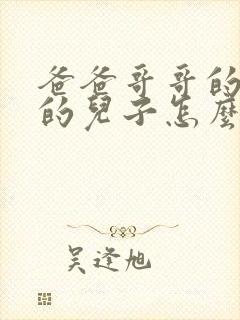 爸爸哥哥的
的兒子怎麼
吴逢旭